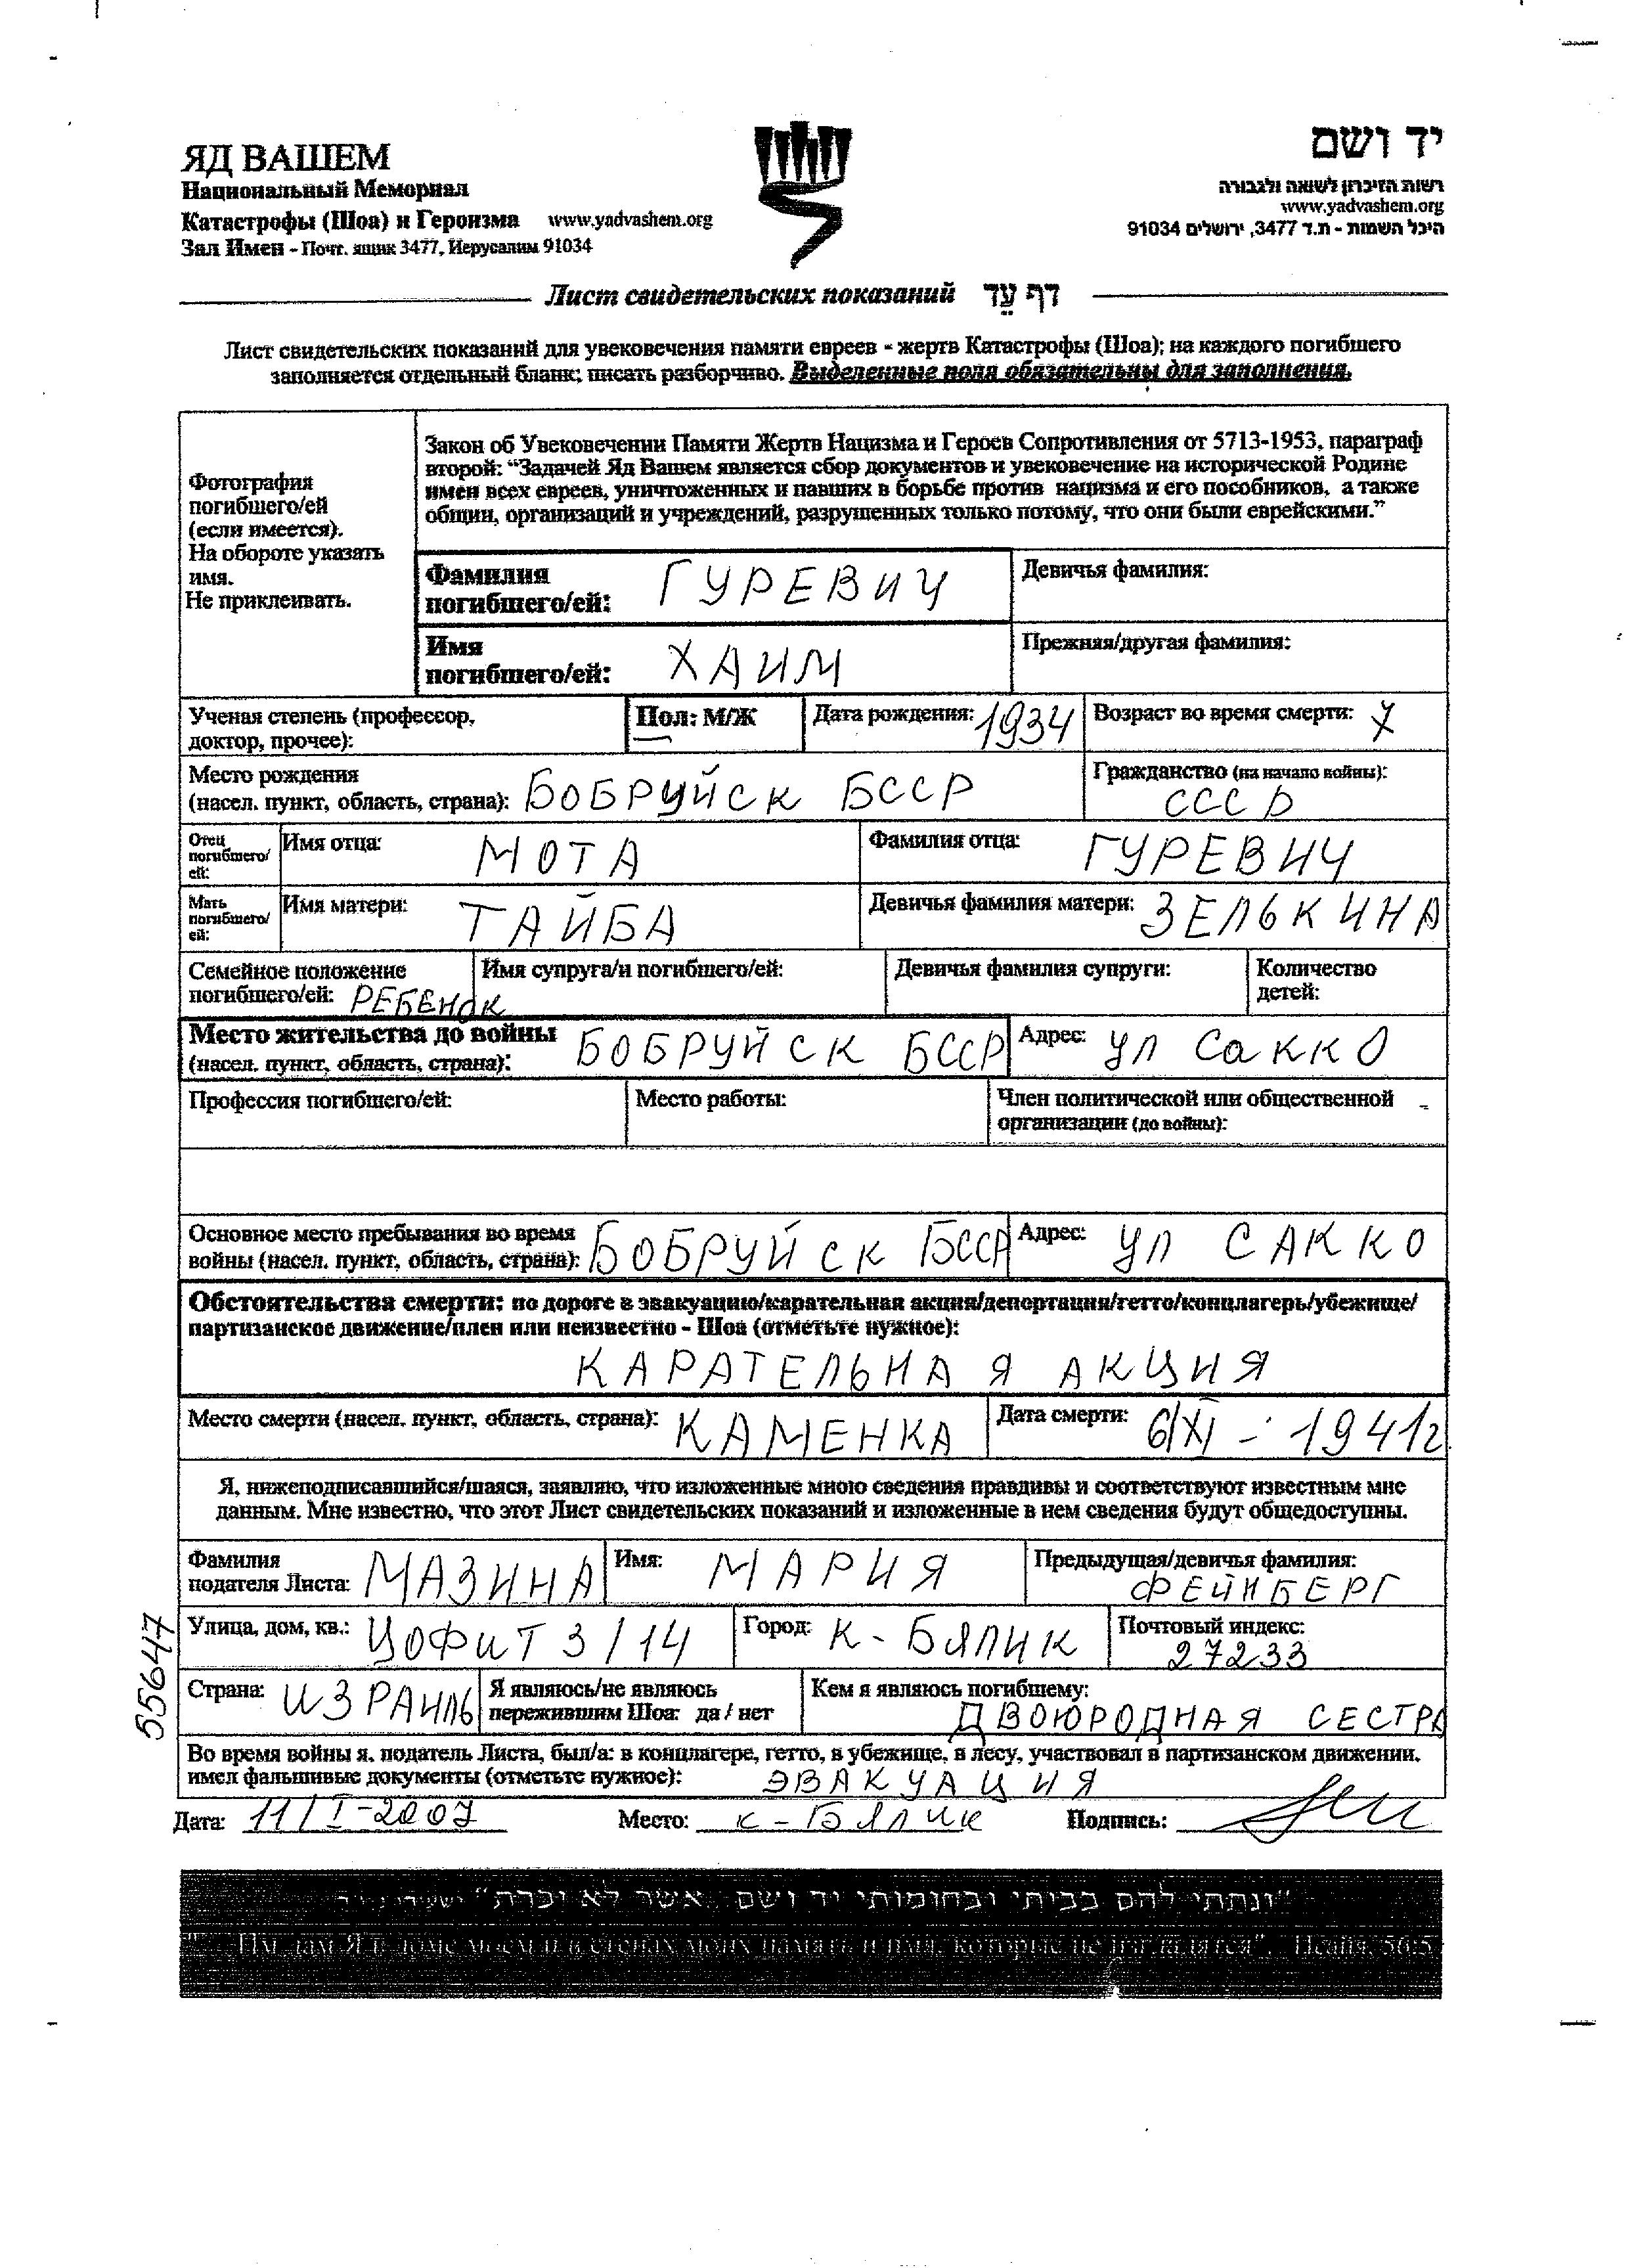 ЯД ВАШЕМ
Национальный Мемориал
Катастрофы (Шоа) и Героизма www.yadvashem.org
Зал Имен - Почт. ящик 3477, Иерусалим 91034
יד ושם
רשות הזיכרון לשואה ולגבורה
www.yadvashem.org
היכל השמות - ת.ד 3477, ירושלים 91034
Лист свидетельских показаний דף עֵד
Лист свидетельских показаний для увековечения памяти евреев - жертв Катастрофы (Шоа); на каждого погибшего
заполняется отдельный бланк; писать разборчиво. Выделенные поля обязательны для заполнения.
Фотография
погибшего/ей
(если имеется).
На обороте указать
имя.
Не приклеивать.
Закон об Увековечении Памяти Жертв Нацизма и Героев Сопротивления от 5713-1953, параграф
второй: “Задачей Яд Вашем является сбор документов и увековечение на исторической Родине
имен всех евреев, уничтоженных и павших в борьбе против нацизма и его пособников, а также
общин, организаций и учреждений, разрушенных только потому, что они были еврейскими.”
Фамилия
погибшего/ей: ГУРЕВИЧ
Девичья фамилия:
Имя
погибшего/ей: ХАИМ
Прежняя/другая фамилия:
Ученая степень (профессор,
доктор, прочее):
Пол: М/Ж
Дата рождения: 1934
Возраст во время смерти: 7
Место рождения
(насел. пункт, область, страна): БОБРУЙСК БССР
Гражданство (на начало войны):
СССР
Отец
погибшего/
ей:
Имя отца: МОТА
Фамилия отца: ГУРЕВИЧ
Мать
погибшего/
ей:
Имя матери: ТАЙБА
Девичья фамилия матери: ЗЕЛЬКИНА
Семейное положение
погибшего/ей: РЕБЕНОК
Имя супруга/и погибшего/ей:
Девичья фамилия супруги:
Количество
детей:
Место жительства до войны
(насел. пункт, область, страна): БОБРУЙСК БССР
Адрес: УЛ САККО
Профессия погибшего/ей:
Место работы:
Член политической или общественной
организации (до войны):
Основное место пребывания во время
войны (насел. пункт, область, страна): БОБРУЙСК БССР
Адрес: УЛ САККО
Обстоятельства смерти: по дороге в эвакуацию/карательная акция/депортация/гетто/концлагерь/убежище/
партизанское движение/плен или неизвестно - Шоа (отметьте нужное):
КАРАТЕЛЬНАЯ АКЦИЯ
Место смерти (насел. пункт, область, страна): КАМЕНКА
Дата смерти: 6/XI - 1941г
Я, нижеподписавшийся/шаяся, заявляю, что изложенные мною сведения правдивы и соответствуют известным мне
данным. Мне известно, что этот Лист свидетельских показаний и изложенные в нем сведения будут общедоступны.
Фамилия
подателя Листа: МАЗИНА
Имя: МАРИЯ
Предыдущая/девичья фамилия:
ФЕЙНБЕРГ
Улица, дом, кв.: ЦОФИТ 3/14
Город: К-БЯЛИК
Почтовый индекс:
27233
Страна: ИЗРАИЛЬ
Я являюсь/не являюсь
пережившим Шоа: да / нет
Кем я являюсь погибшему:
ДВОЮРОДНАЯ СЕСТРА
Во время войны я, податель Листа, был/а: в концлагере, гетто, в убежище, в лесу, участвовал в партизанском движении,
имел фальшивые документы (отметьте нужное): ЭВАКУАЦИЯ
Дата: 11/I-2007 Место: К-БЯЛИК Подпись:
55647
"ונתתי להם בביתי ובחומותי יד ושם...אשר לא יכרת"
"...Им дам Я в доме моем и в стенах моих память и имя, которые не изгладятся". Исайя, 56:5